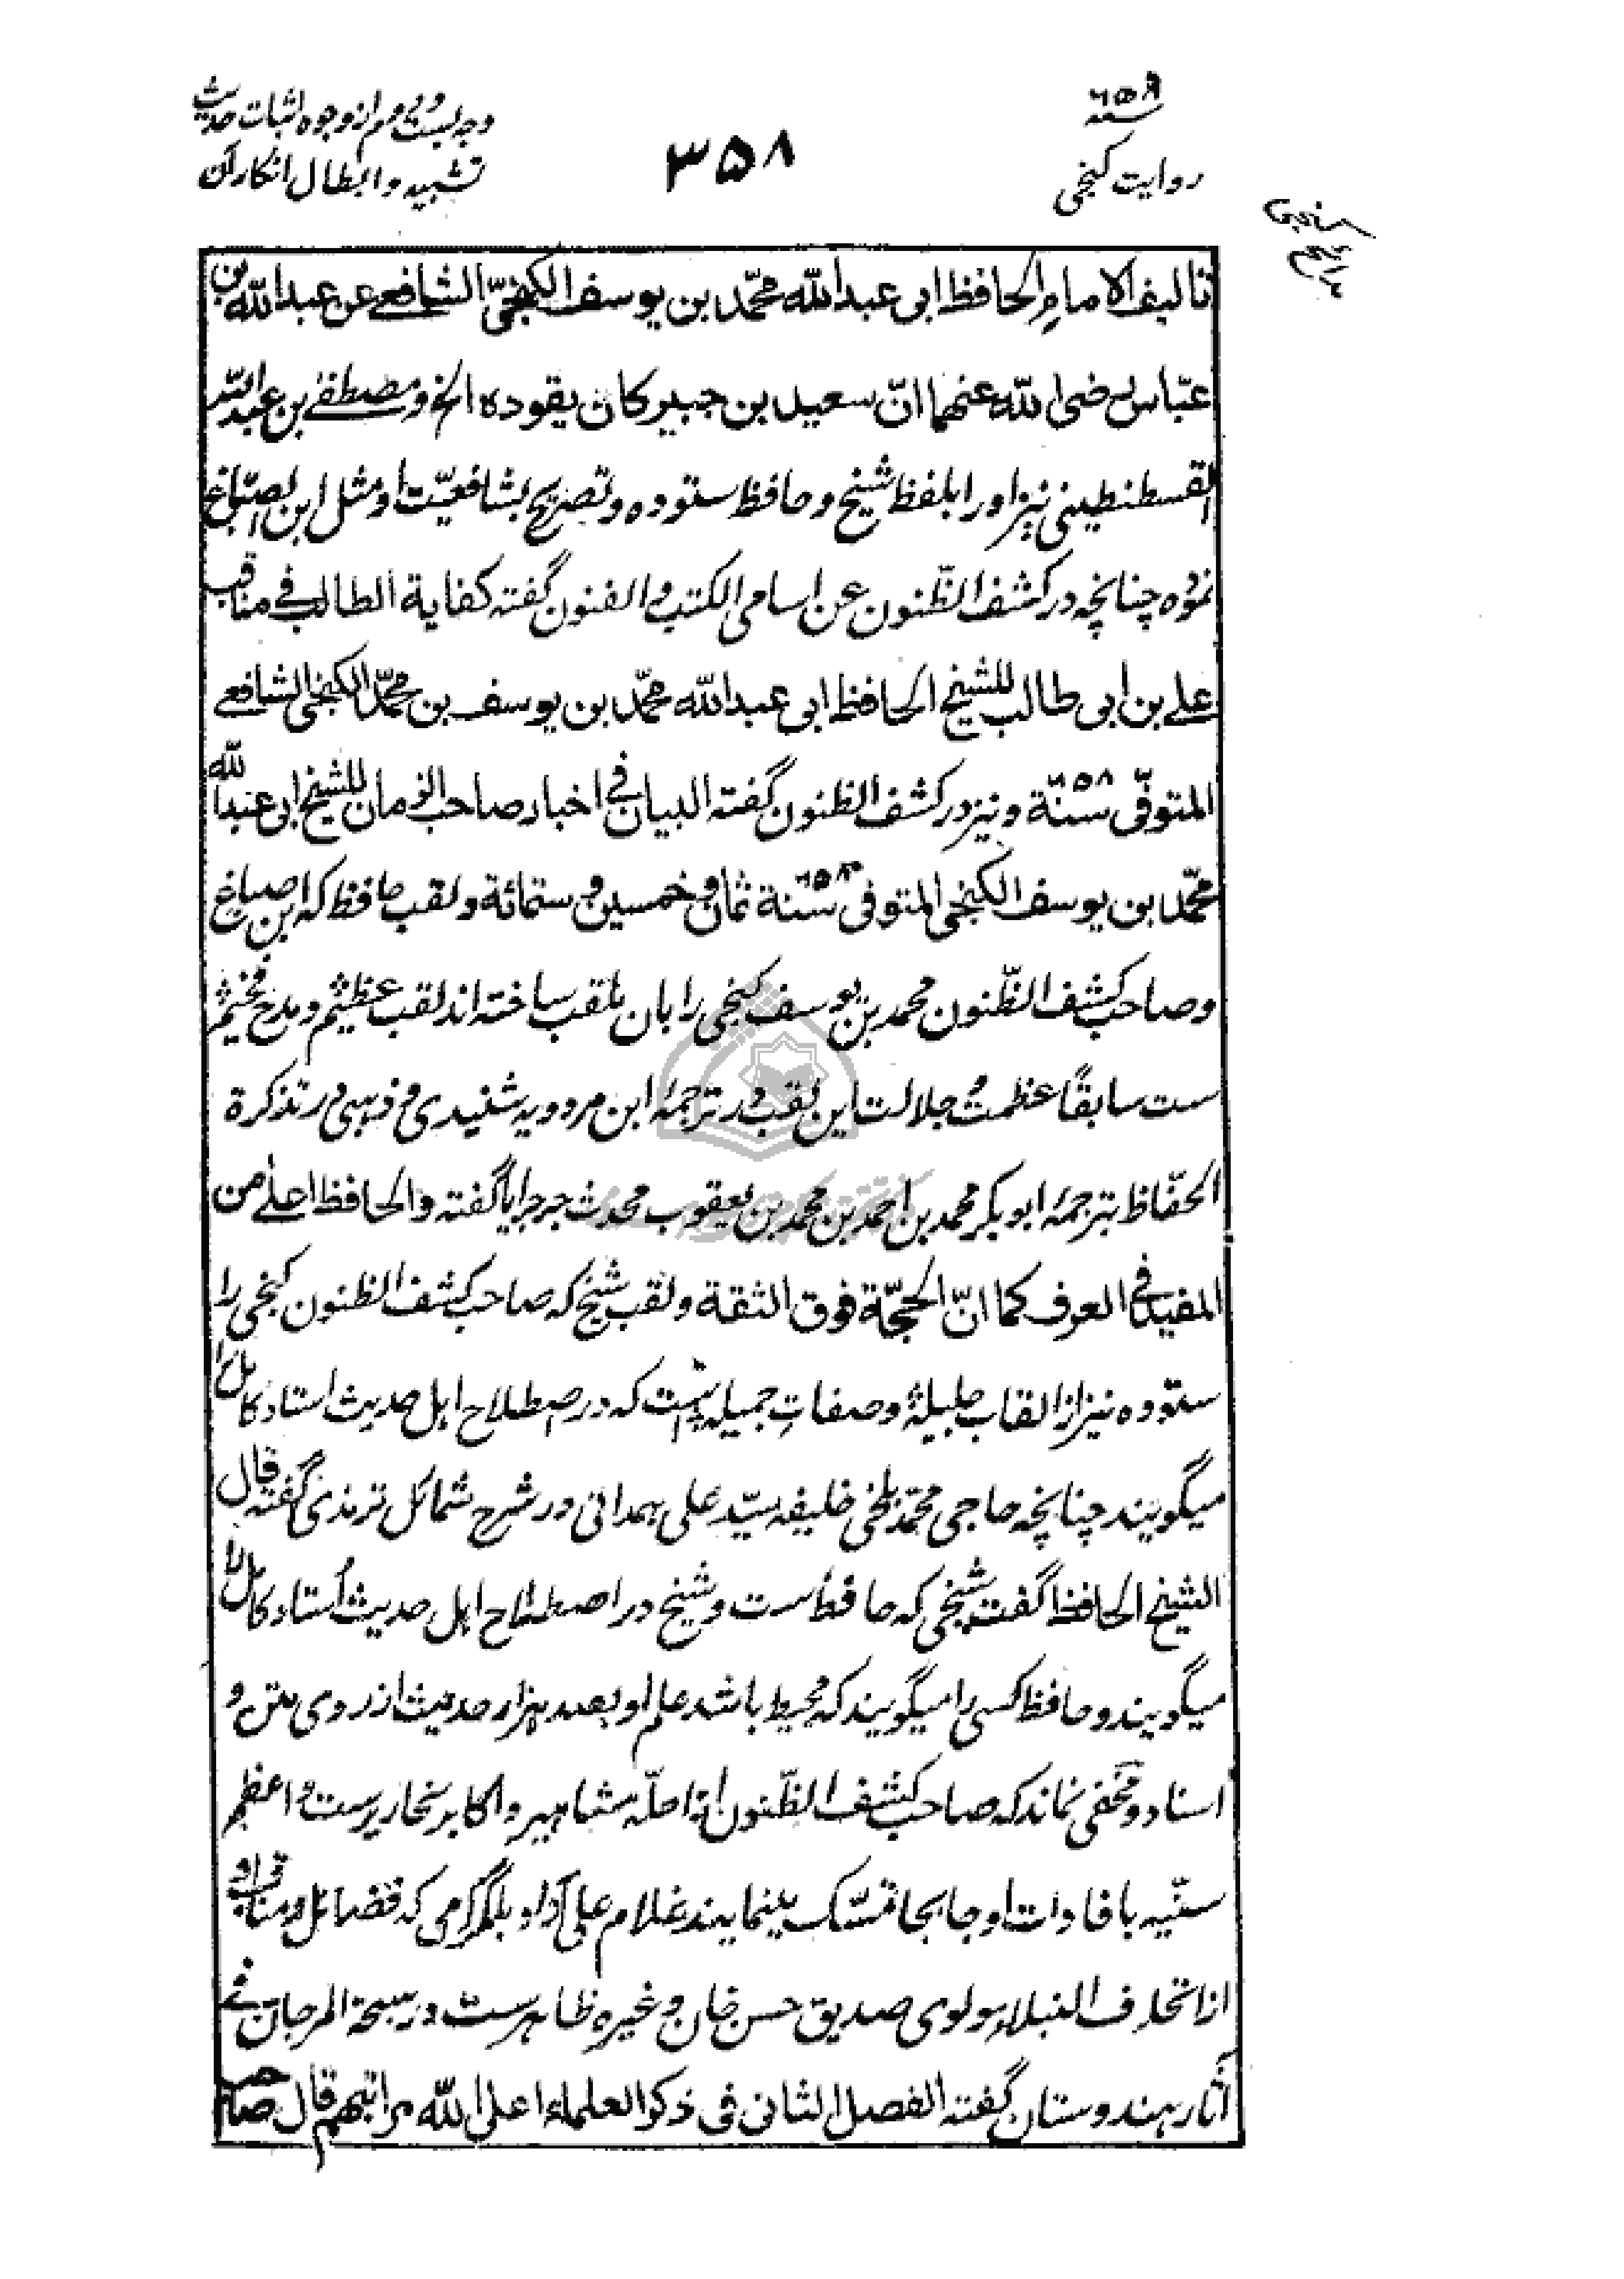 وجه بست و دوم از وجوه اثبات حدیث
تشبیه و ابطال انکار آن
۳۵۸
سنه ۶۵۸
روایت کنجی
تالیف الامام الحافظ ابی عبدالله محمّد بن یوسف الکنجیّ الشافعے عن عبدالله بن
عبّاس رضی الله عنهما انّ سعید بن جبیر کان یقوده الخ و مصطفے بن عبدالله
القسطنطینی نیز او را بلفظ شیخ و حافظ ستوده و تصریح بشافعیّت او مثل ابن الصبّاغ
نموده چنانچه در کشف الظّنون عن اسامی الکتب و الفنون گفته کفایة الطالب فے مناقب
علے بن ابی طالب للشیخ الحافظ ابی عبدالله محمّد بن یوسف بن محمّد الکنجی الشافعے
المتوفّی سنة ۶۵۸ و نیز در کشف الظنون گفته البیان فے اخبار صاحب الزمان للشیخ ابی عبدالله
محمّد بن یوسف الکنجی المتوفی سنة ۶۵۸ ثمان و خمسین و ستمائة و لقب حافظ که ابن صباغ
و صاحب کشف الظّنون محمد بن یوسف کنجی را بان ملقب ساخته اند لقب عظیم و مدح فخیم
ست سابقًا عظمت و جلالت این لقب در ترجمۀ ابن مردویه شنیدی و ذهبی در تذکرة
الحفّاظ بترجمۀ ابو بکر محمد بن احمد بن محمد بن یعقوب محدث جرجرایا گفته والحافظ اعلے من
المفید فے العرف کما انّ الحجّة فوق الثقة و لقب شیخ که صاحب کشف الظنون کنجی را
ستوده نیز از القاب جلیلۀ و صفات جمیله است که در اصطلاح اهل حدیث استاد کامل را
میگویند چنانچه حاجی محمّد بلخی خلیفه سیّد علی همدانی در شرح شمائل ترمذی گفته قال
الشیخ الحافظ گفت شیخی که حافظ ست و شیخ در اصطلاح اهل حدیث اُستاد کامل را
میگویند و حافظ کسی را میگویند که محیط باشد علم او بصد هزار حدیث از روی متن و
اسناد و مخفی نماند که صاحب کشف الظّنون از اجلّه مشاهیر و اکابر نحاریرست و اعظم
سنّیه بافادات او جابجا تمسّک مینمایند غلام علی آزاد بلگرامی که فضائل و مناقب او
از اتحاف النبلاء مولوی صدیق حسن خان و غیره ظاهرست در سبحة المرجان فے
آثار هندوستان گفته الفصل الثانی فی ذکر العلماء اعلی الله مراتبهم قال صاحب